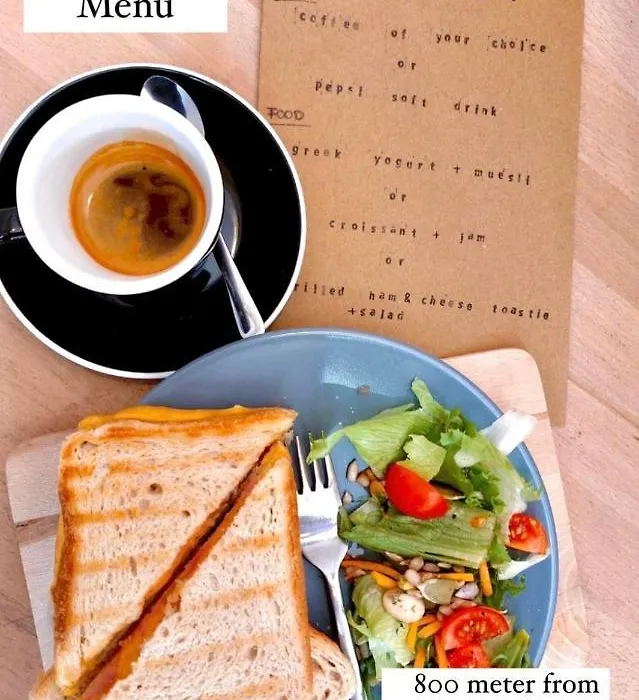 Menu
coffee of your choice
or
pepsi soft drink
FOOD
greek yogurt + muesli
or
croissant + jam
or
rilled ham & cheese toastie
+salad
800 meter from